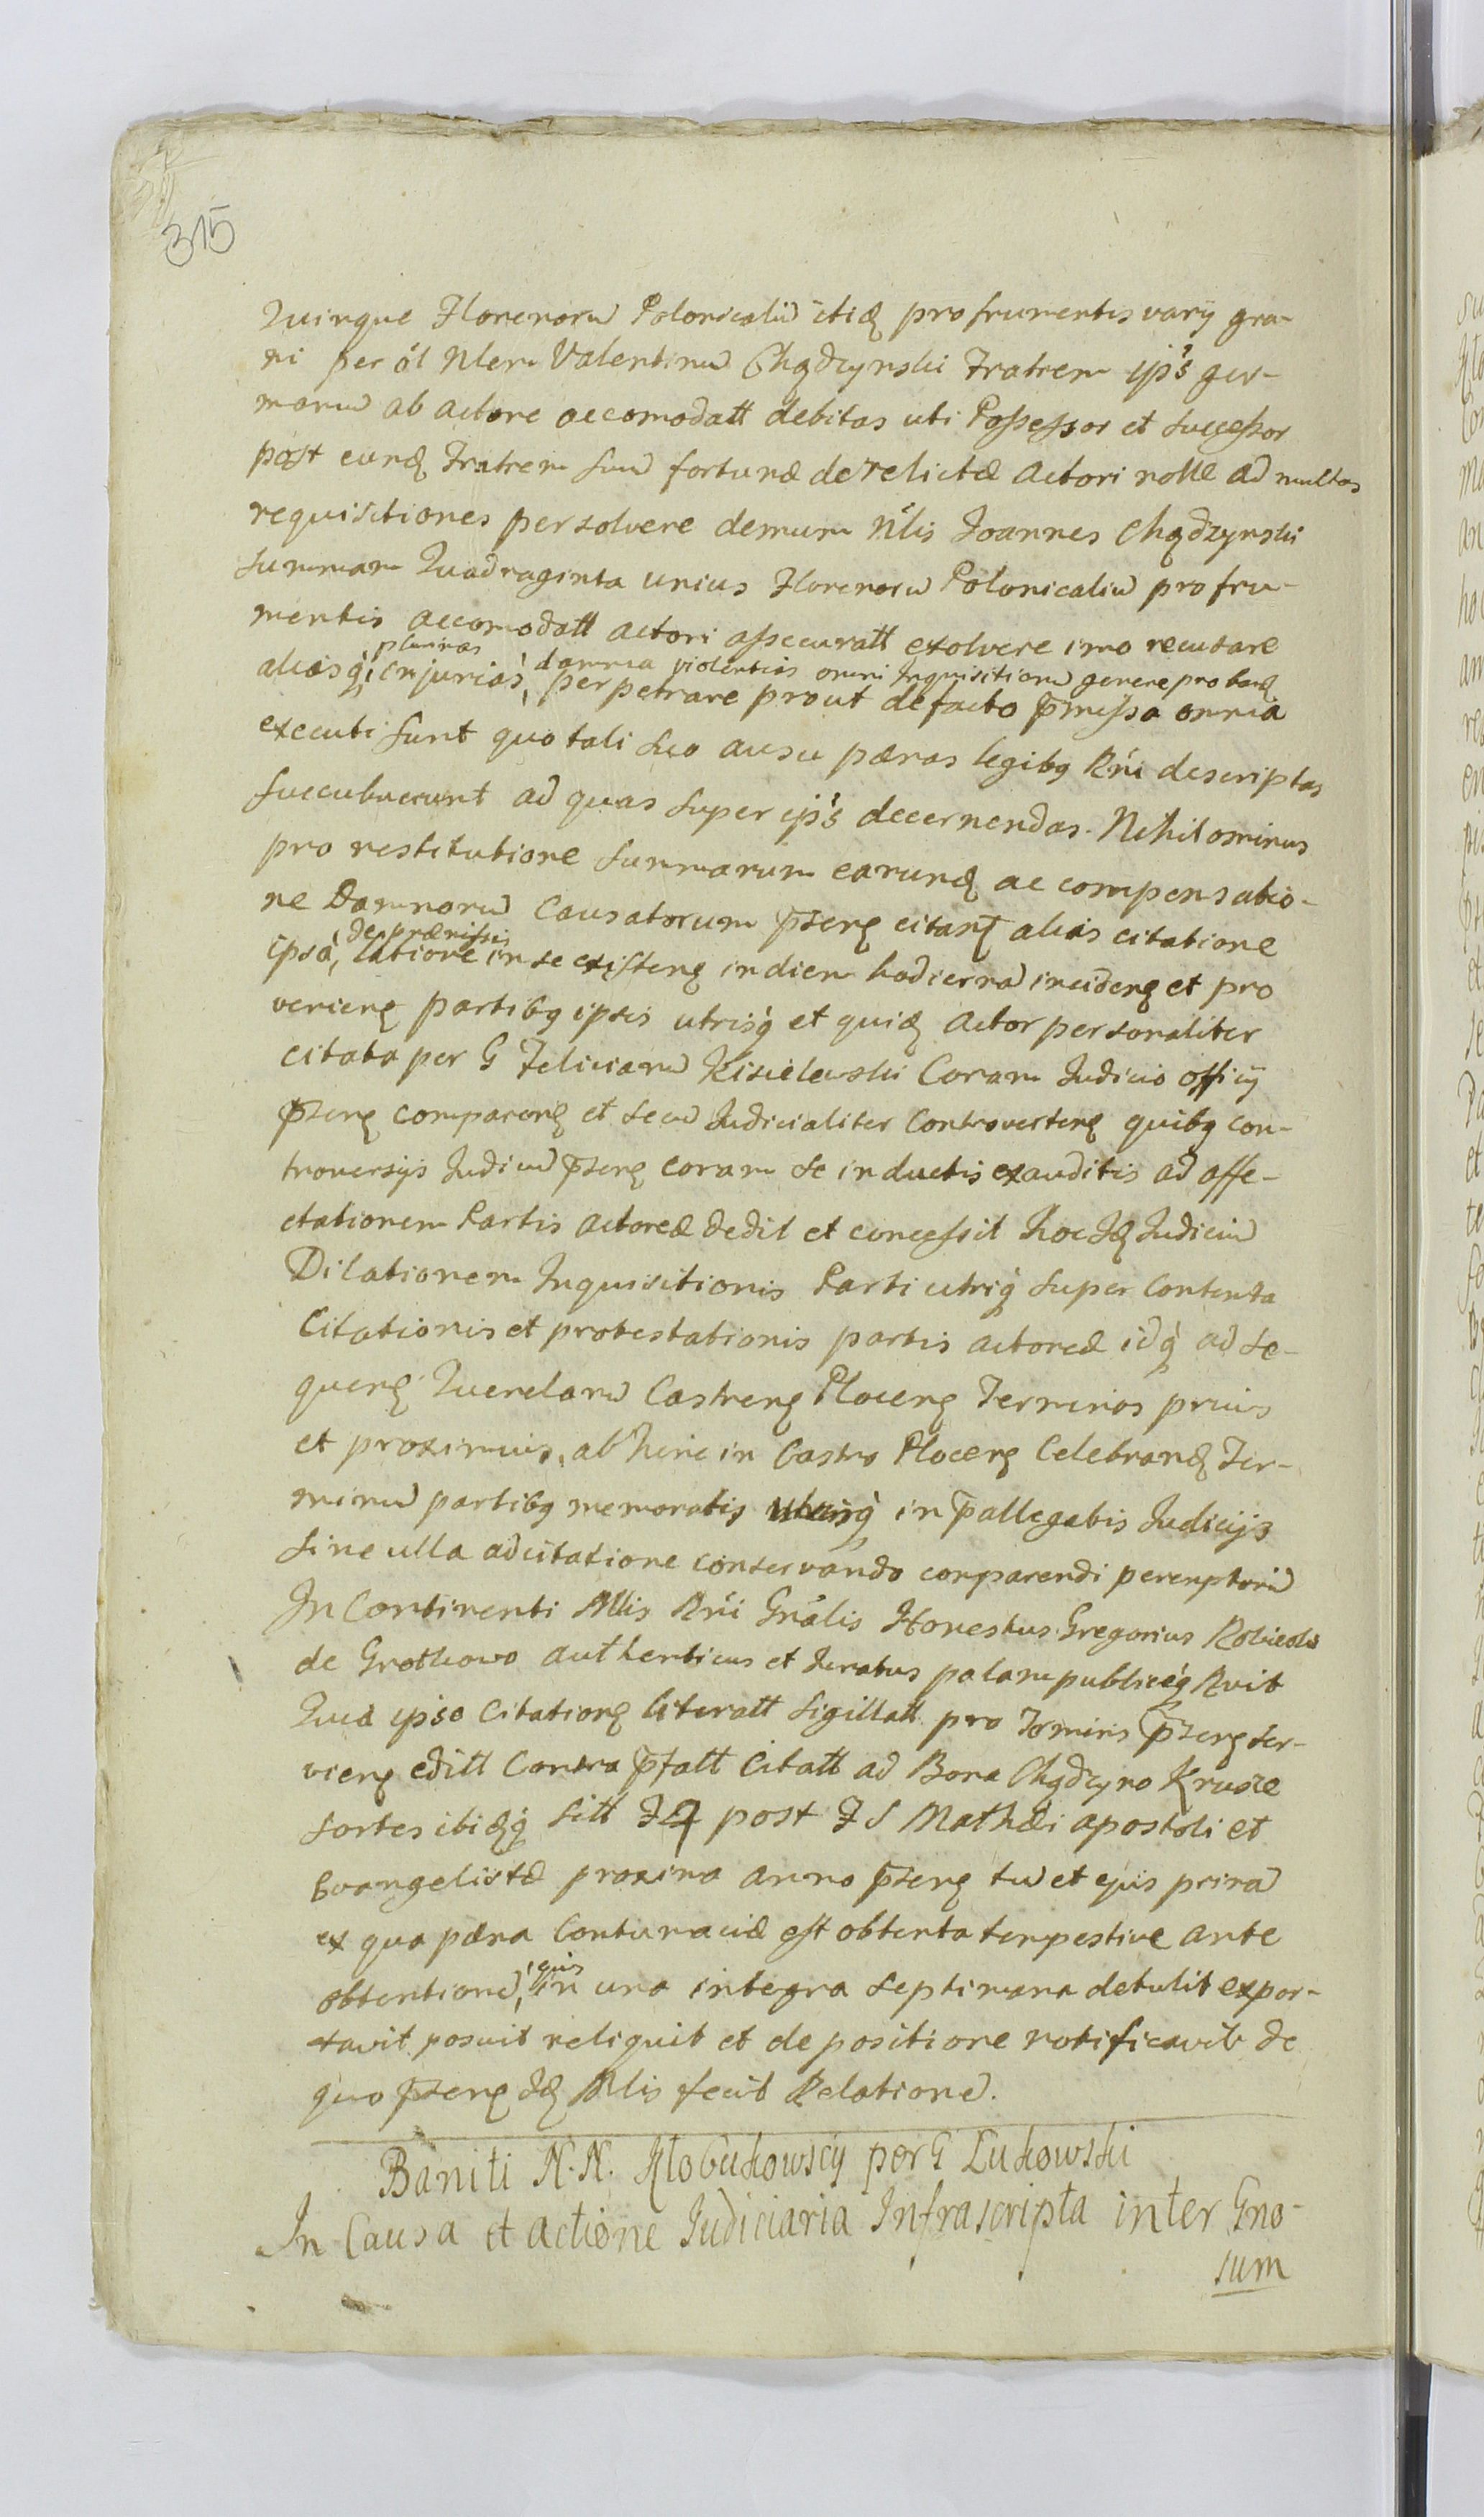 315
Quinque Florenorũ Polonicaliũ itidę pro frumentis varÿ gra-
ni per ol Nlem Valentinũ Chądzynski Fratrem ipś ger-
manũ ab actore accomodatt debitas uti Possessor et successor
post eundę Fratrem suũ fortunæ derelictæ actori nolle ad multas
requisitiones persolvere demum Nlis Joannes Chądzynski
summam Quadraginta unius Florenorũ Polonicaliũ pro fru-
mentis accomodatt actori assecuratt exolvere imo recusare
plurimas damna violentias omni Inquisitionũ genere probandę
aliasq̃ injurias perpetrare prout de facto p̃missa omnia
executi sunt quo tali suo ausu pænas legibq Rńi descriptas
succubuerunt ad quas super ipś decernendas. Nihilominus
pro restitutione summarum earundę ac compensatio-
ne Damnorũ causatorum p̃senę citantę alias citatione
de præmissis
ipsa, latiore in se existenę in diem hodiernã incidenę et pro
venienę partibq ipsis utrisq̃ et quidę actor personaliter
citata per G Felicianũ Kisielewski Coram Judicio officÿ
p̃senę comparenę et secũ Judicialiter Controvertenę quibq con-
troversÿs Judiciũ p̃senę coram se inductis exauditis ad affe-
ctationem Partis actoreæ dedit et concessit hoc Idę Judiciũ
Dilationem Inquisitionis Parti utriq̃ super Contenta
Citationis et protestationis partis actoreæ idq̃ ad se-
quenę Querelarũ Castrenę Plocenę Terminos prius
et proximius, ab hinc in Castro Plocenę Celebrandę Ter-
minũ partibq memoratis utrisq̃ in p̃allegatis Judicÿs
sine ulla adcitatione conservando comparendi peremptoriũ
In Continenti Mlis Rńi Gńalis Honestus Gregorius
de Grotkowo authenticus et Juratus palam publiceq̃ Rvit
Quia ipse Citationę literatt sigillatt pro Terminis p̃senę ser-
vienę editt Contra p̃fatt Citatt ad Bona Chądzyno Krusze
sortes ibidęq̃ sitt F4 post F S Mathæi apostoli et
Evangelistæ proxima anno p̃senę tũ et ejus primã
ex qua pæna contumaciæ est obtenta tempestive ante
ejus
obtentionẽ, in una integra septimana detulit expor-
tavit posuit reliquit et de positione notificavit de
quo p̃senę Idę Mlis fecit Relationẽ.
Baniti N.N. Kłobukowscÿ per G Łukowski
In Causa et actione Judiciaria Infrascripta inter Gno-
sum